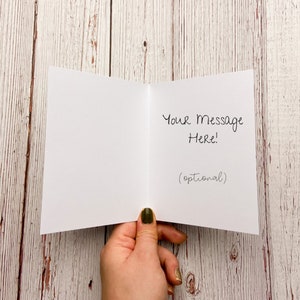 Your Message
Here!
(optional)